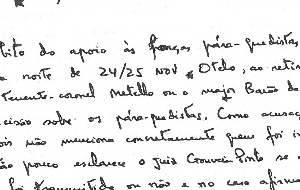 bito do apoio às forças pára-quedistas
a noite de 24/25 NOV. Otelo, ao retir
tenente-coronel Metello ou o major Barão da
cisão sobre os pára-quedistas. Como acusaç
ois não menciona concretamente quem foi i
ão pouco esclarece o juiz Gouveia Pinto se
foi transmitida ou não e no caso afirm